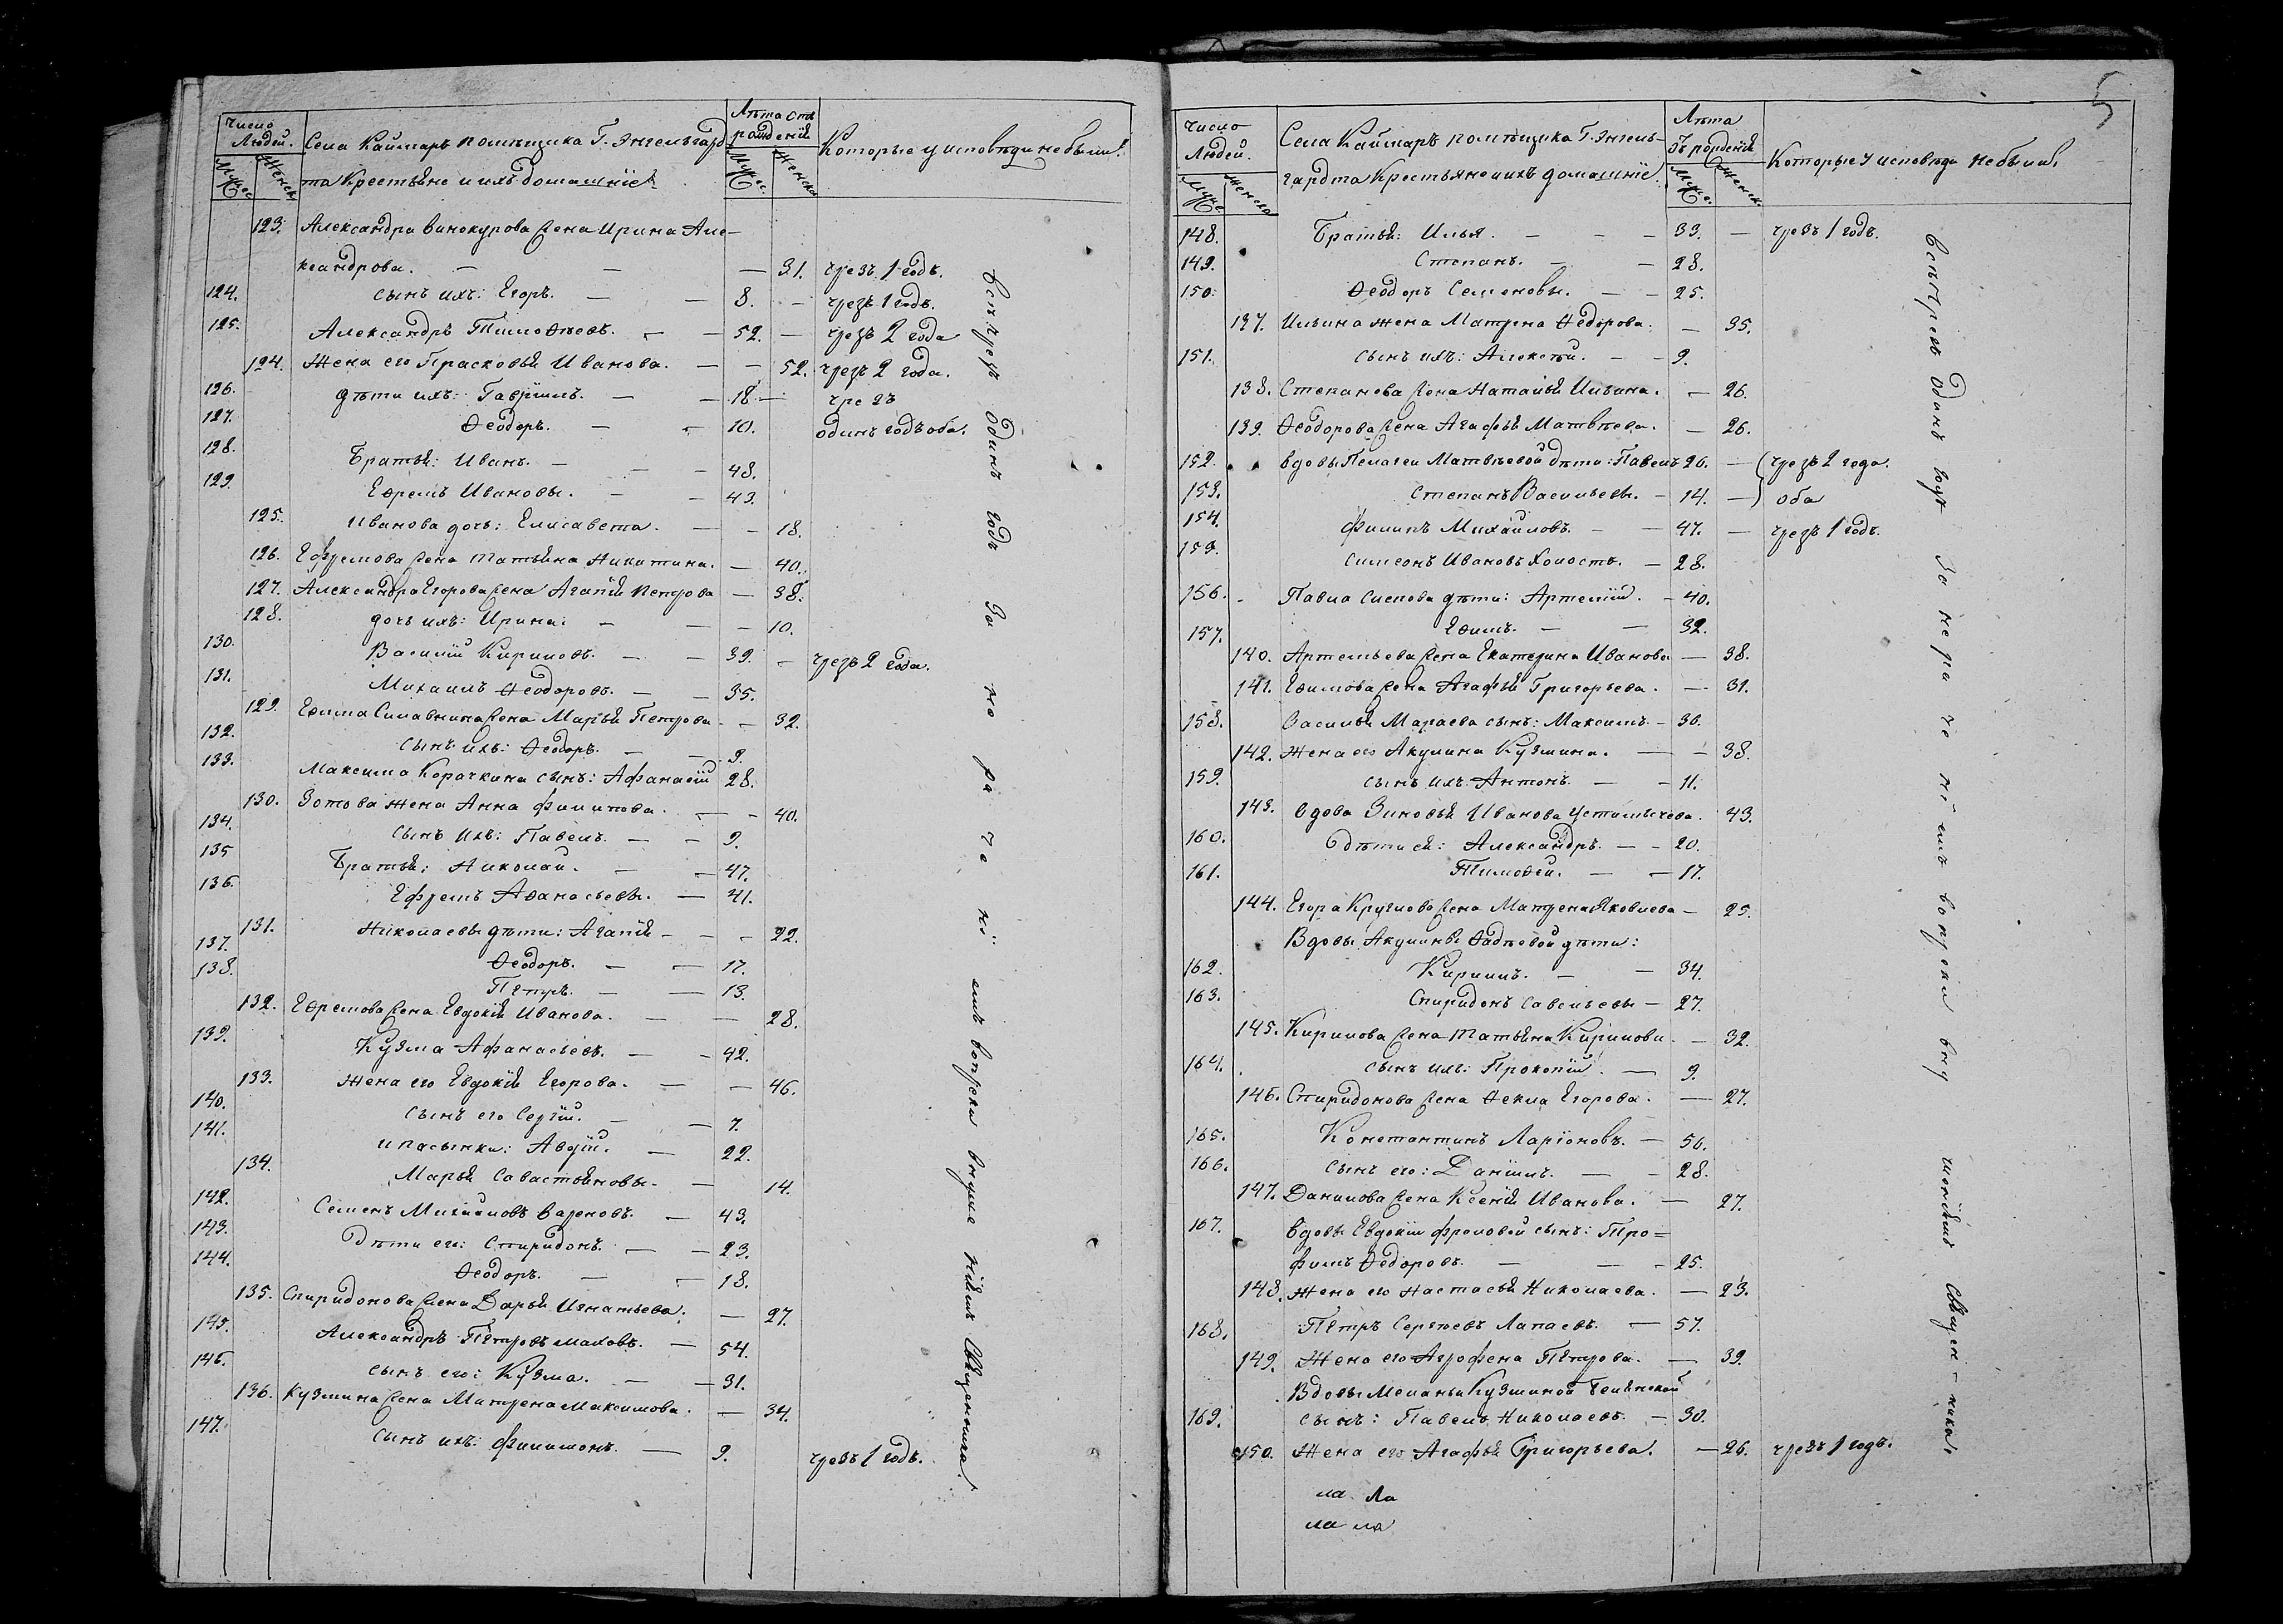 Число Людей.
Мужес. Женска
Села Каймаръ помѣщика Г. Энгельгард
та Крестьяне и ихъ домашніе
Лѣта отъ рожденія
Мужес. Женска
Которые у исповѣди не были.
123. Александра Винокурова жена Ирина Але-
ксандрова. — — — 31. чрезъ 1 годъ.
124. сынъ ихъ: Егоръ. — — 8. — чрезъ 1 годъ.
125. Александръ Тимоѳеевъ. — — 52. — чрезъ 2 года
124. Жена его Прасковья Иванова. — — 52. чрезъ 2 года.
126. дѣти ихъ: Гавріилъ. — — 18 — чрезъ
127. Ѳеодоръ. — — 10. одинъ годъ оба.
128. Братья: Иванъ. — — — 48.
129. Еѳремъ Ивановы. — — 43.
125. Иванова дочь: Елисавета. — — 18.
126. Ефремова жена Татьяна Никитина. — 40.
127. Александра Егорова жена Агапія Петрова — 38.
128. дочь ихъ: Ирина. — — — 10.
130. Василій Кириловъ. — — 39. — чрезъ 2 года.
131. Михаилъ Ѳеодоровъ. — — 35.
129. Еѳима Силавнина жена Марья Петрова — — 32.
132. сынъ ихъ: Ѳеодоръ. — — 9.
133. Максима Корочкина сынъ: Афанасій 28.
130. Зотова жена Анна Филипова. — — 40.
134. сынъ ихъ: Павелъ. — — 9.
135 Братья: Николай. — — 47.
136. Ефремъ Аѳанасьевы. — 41.
131. Николаевы дѣти: Агапія — — — 22.
137. Ѳеодоръ. — — 17.
138. Петръ. — — 13.
132. Еѳремова жена Евдокія Иванова. — — 28.
139. Кузма Афанасьевъ. — — 42.
133. Жена его Евдокія Егорова. — — 46.
140. сынъ его Сергій. — — 7.
141. и пасынки: Авдій. — 22.
134. Марья Савастьяновы. — 14.
142. Семенъ Михайловъ Вареновъ. — 43.
143. Дѣти его: Спиридонъ. — — 23.
144. Ѳеодоръ. — — 18.
135. Спиридонова жена Дарья Игнатьева. — 27.
145. Александръ Петровъ Маховъ. — 54.
146. сынъ его: Кузма. — — 31.
136. Кузмина жена Матрена Максимова. — 34.
147. сынъ ихъ: Филимонъ. — 9. чрезъ 1 годъ.
чрезъ одинъ годъ За не ра че ні емъ вопреки внуше ніямъ Священника.
5
Число Людей.
Мужс Женска
Села Каймаръ помѣщика Г. Энгель-
гардта Крестьяне и ихъ домашніе.
Лѣта Ѿ рожденія
Мужес. Женск.
Которые у исповѣди не были
148. Братья: Илья. — — — 33. — чрезъ 1 годъ.
149. Степанъ. — — 28.
150. Ѳеодоръ Семеновы. — — 25.
137. Ильина жена Матрена Ѳедорова. — 35.
151. сынъ ихъ: Алексѣй. — — 9.
138. Степанова жена Наталья Ильина. — 26.
139. Ѳеодорова жена Агафья Матвѣева. — 26.
152. вдовы Пелагеи Матвѣевой дѣти: Павелъ 26. — чрезъ 2 года.
153. Степанъ Васильевы. — 14. — оба
154. Филипъ Михайловъ. — — 47. — чрезъ 1 годъ.
159. Симеонъ Ивановъ Холостъ. — 28.
156. Павла Сиепова дѣти: Артемій. — 40.
157. Еѳимъ. — — 32.
140. Артемьева жена Екатерина Иванова — 38.
141. Еѳимова жена Агафья Григорьева. — 31.
158. Василья Мараева сынъ: Максимъ. — 30.
142. Жена его Акулина Кузмина. — — 38.
159. сынъ ихъ Антонъ. — — 11.
143. вдова Зиновья Иванова Устимычева. 43.
160. Дѣти ея: Александръ. — — 20.
161. Тимоѳей. — — 17.
144. Егора Круглова жена Матрена Яковлева — 25.
Вдовы Акулины Ѳадѣевой дѣти:
162. Кирилъ. — — 34.
163. Спиридонъ Савельевы — 27.
145. Кирилова жена Татьяна Кирилова. — 32.
164. сынъ ихъ: Прокопій. — 9.
146. Спиридонова жена Ѳекла Егорова. — 27.
165. Константинъ Ларіоновъ. — 50.
166. сынъ его: Даніилъ. — — 28.
147. Данилова жена Ксенія Иванова. — 27.
167. вдовы Евдокіи Фроловой сынъ: Тро=
фимъ Ѳедоровъ. — — — 25.
148. Жена его Настасья Николаева. — 23.
168. Петръ Сергѣевъ Лапаевъ. — 57.
149. Жена его Агрофена Петрова. — 39.
Вдовы Меланьи Кузминой
169. сынъ: Павелъ Николаевъ. — 30.
150. Жена его Агафья Григорьева. — 26. чрезъ 1 годъ.
ла Ла
ла ла
чрезъ одинъ годъ За не ра че ні емъ вопреки вну шеніямъ Священ-ника.